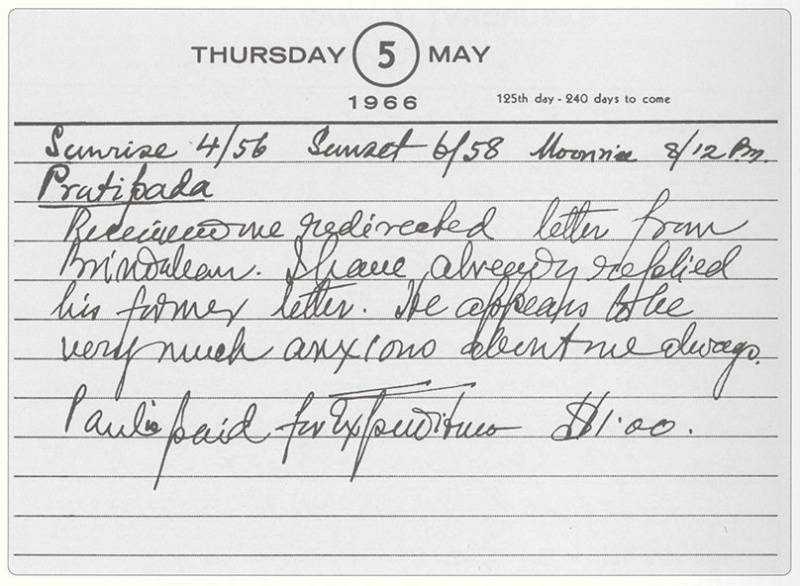 THURSDAY 5 MAY
1966 125th day - 240 days to come
Sunrise 4/56 Sunset 6/58 Moonrise 8/12 P.m.
Pratipada
Received one redirected letter from
Brindaban. I have already replied
his former letter. He appears to be
very much anxious about me always.
Paul paid for Expenditures $1.00.